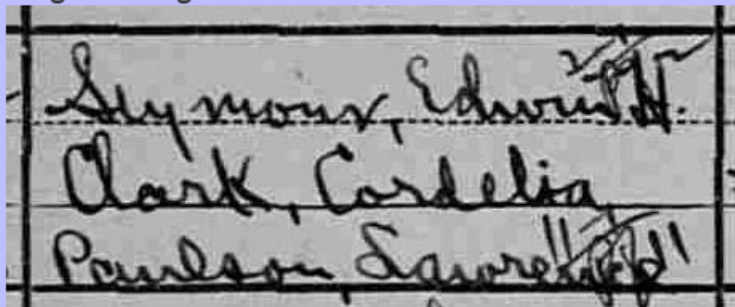 Seymour, Edwin H.
Clark, Cordelia
Paulson, Lawrence